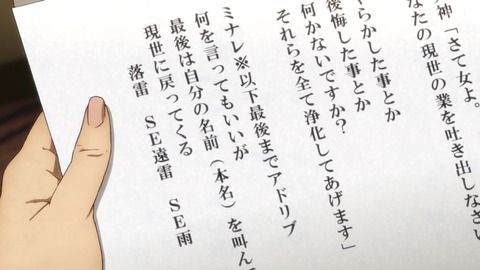 神「さて女よ。
なたの現世の業を吐き出しなさい
らかした事とか
後悔した事とか
何かないですか?
それらを全て浄化してあげます」
ミナレ※以下最後までアドリブ
何を言ってもいいが
最後は自分の名前(本名)を叫ん
現世に戻ってくる
落雷 SE遠雷 SE雨